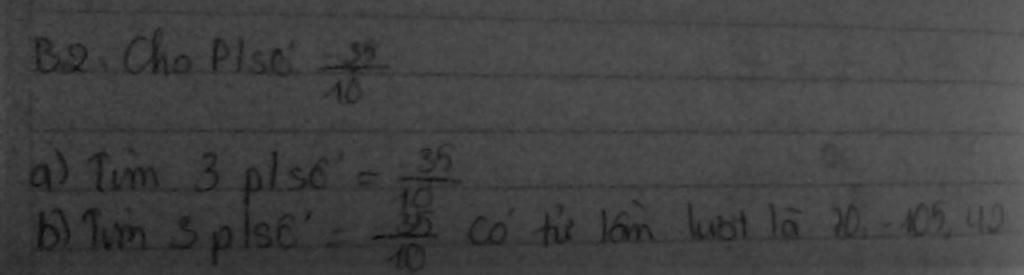 B2. Cho P/số 35/10
a) Tìm 3 p/số = 35/10
b) Tìm 3 p/số = 35/10 có tử lần lượt là 70, -105, 42